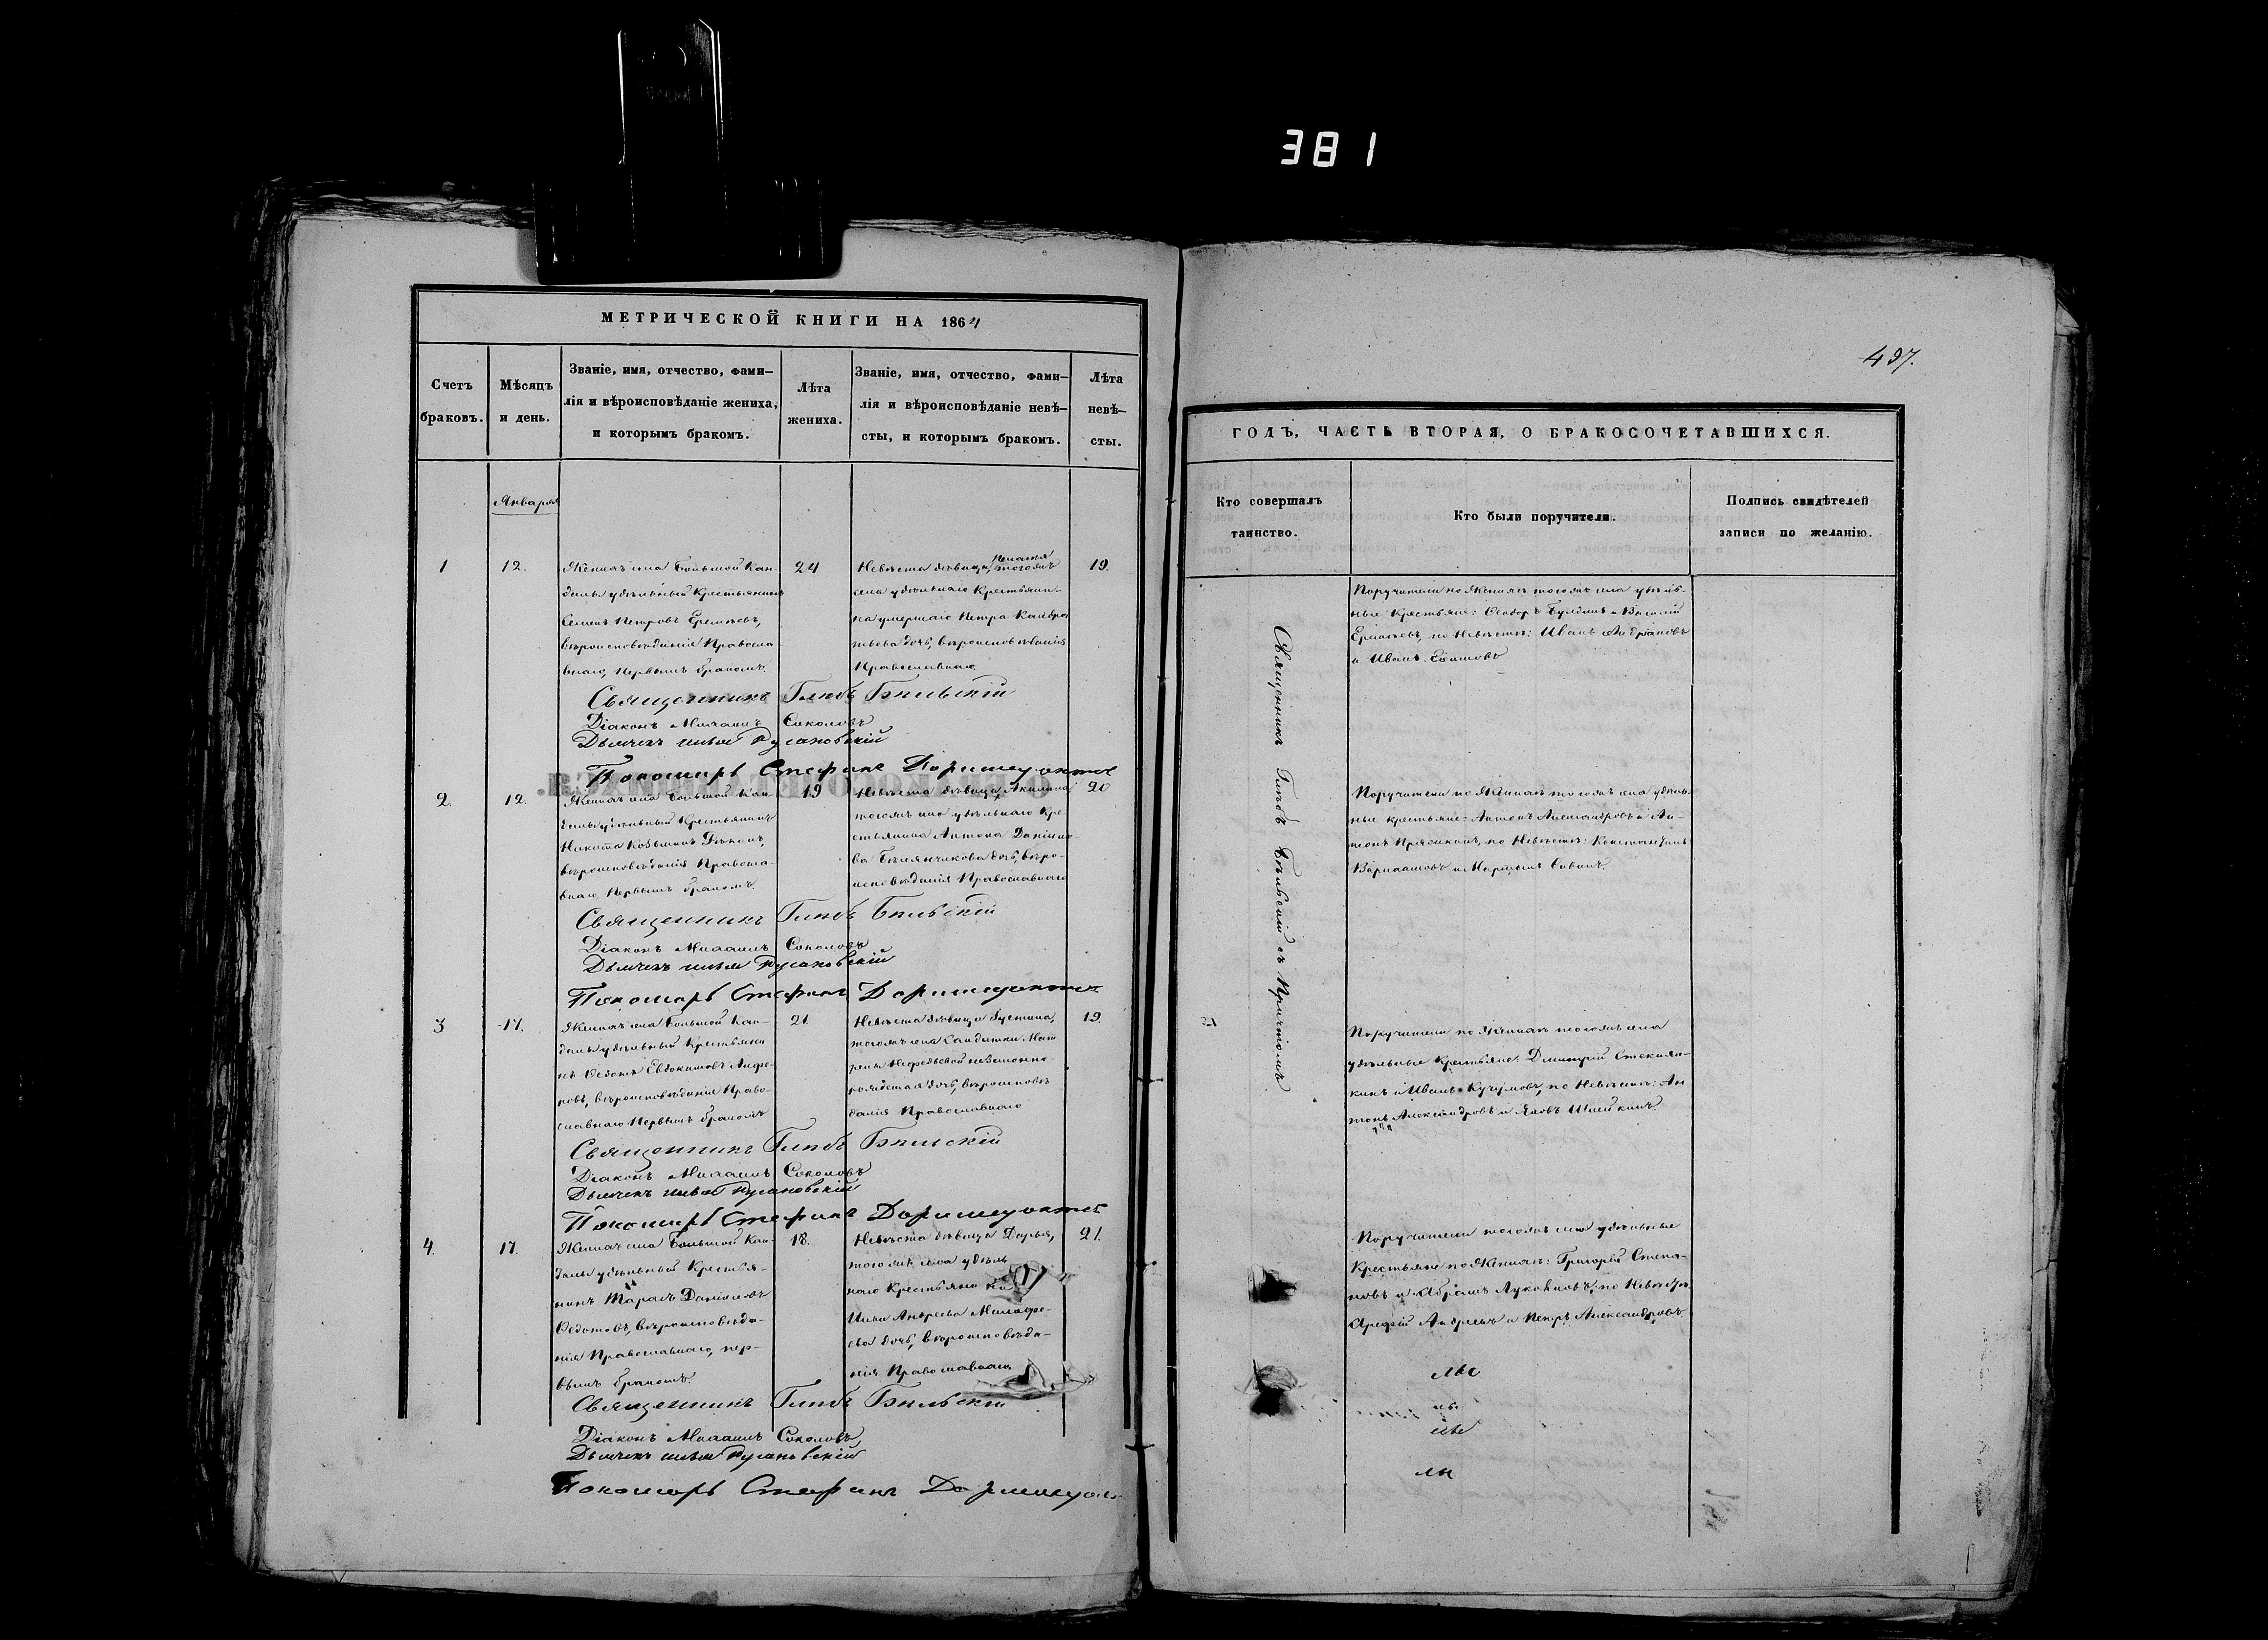 381
МЕТРИЧЕСКОЙ КНИГИ НА 1864
Счетъ
браковъ.
Мѣсяцъ
и день.
Званіе, имя, отчество, фами-
лія и вѣроисповѣданіе жениха,
и которымъ бракомъ.
Лѣта
жениха.
Званіе, имя, отчество, фами-
лія и вѣроисповѣданіе невѣ-
сты, и которымъ бракомъ.
Лѣта
невѣ-
сты.
Января
1
12.
Женихъ села Большой Кан-
далы удѣльный Крестьянинъ
Семенъ Петровъ Еремѣевъ,
вѣроисповѣданія Правосла-
внаго, Первымъ бракомъ.
24
Невѣста дѣвица, Пелагея тогожъ
села удѣльнаго Крестьяни-
на умершаго Петра
дочь, вѣроисповѣданія
Православнаго
19.
Священникъ Глѣбъ Бѣльскій
Діаконъ Михаилъ Соколовъ
Дьячекъ Илья
Пономарь Стефанъ
2.
12.
Женихъ села Большой Кан-
далы удѣльный Крестьянинъ
Никита Козьминъ
вѣроисповѣданія Правосла-
внаго, Первымъ бракомъ.
19
Невѣста дѣвица Акилина
тогожъ села удѣльнаго Кре-
стьянина Антона Данило-
ва дочь, вѣро-
исповѣданія Православнаго
20
Священникъ Глѣбъ Бѣльскій
Діаконъ Михаилъ Соколовъ
Дьячекъ Илья
Пономарь Стефанъ
3
17.
Женихъ села Большой Кан-
далы удѣльный Крестьяни-
нъ Ѳедотъ Евдокимовъ
вѣроисповѣданія Право-
славнаго Первымъ бракомъ
21.
Невѣста дѣвица Устинья,
тогожъ села Солдатки Мат
рены незаконно-
рожденая дочь, вѣроисповѣ
данія Православнаго
19.
Священникъ Глѣбъ Бѣльскій
Діаконъ Михаилъ Соколовъ
Дьячекъ Илья
Пономарь Стефанъ
4.
17.
Женихъ села Большой Кан-
далы удѣльный Крестья-
нинъ Тарасъ Даниловъ
Ѳедотовъ, вѣроисповѣда-
нія Православнаго, пер-
вымъ бракомъ.
18.
Невѣста дѣвица Дарья,
тогожъ села удѣль
наго Крестьянина
Ильи Андреева
дочь, вѣроисповѣда-
нія Православнаго.
21.
Священникъ Глѣбъ Бѣльскій
Діаконъ Михаилъ Соколовъ,
Дьячекъ Илья
Пономарь Стефанъ
497.
ГОДЪ, ЧАСТЬ ВТОРАЯ, О БРАКОСОЧЕТАВШИХСЯ.
Кто совершалъ
таинство.
Кто были поручители.
Подпись свидѣтелей
записи по желанію.
Священникъ Глѣбъ Бѣльскій съ Причтомъ
Поручители по Женихѣ тогожъ села удѣль-
ные Крестьяне: Ѳедоръ и Василій
Еремѣевъ, по Невѣстѣ: Иванъ Андріановъ
и Иванъ
Поручители по Женихѣ тогожъ села удѣль-
ные крестьяне: Антонъ Александровъ и Ан-
тонъ по Невѣстѣ: Константинъ
Варлаамовъ и Савинъ.
Поручители по Женихѣ тогожъ села
удѣльные Крестьяне: Димитрій
и Иванъ Кучумовъ, по Невѣстѣ: Ан
тонъ Александровъ и Яковъ
Поручители тогожъ села удѣльные
Крестьяне по Женихѣ: Григорій Степа-
новъ и Абрамъ по Невѣстѣ:
Андреевъ и Петръ Александровъ.